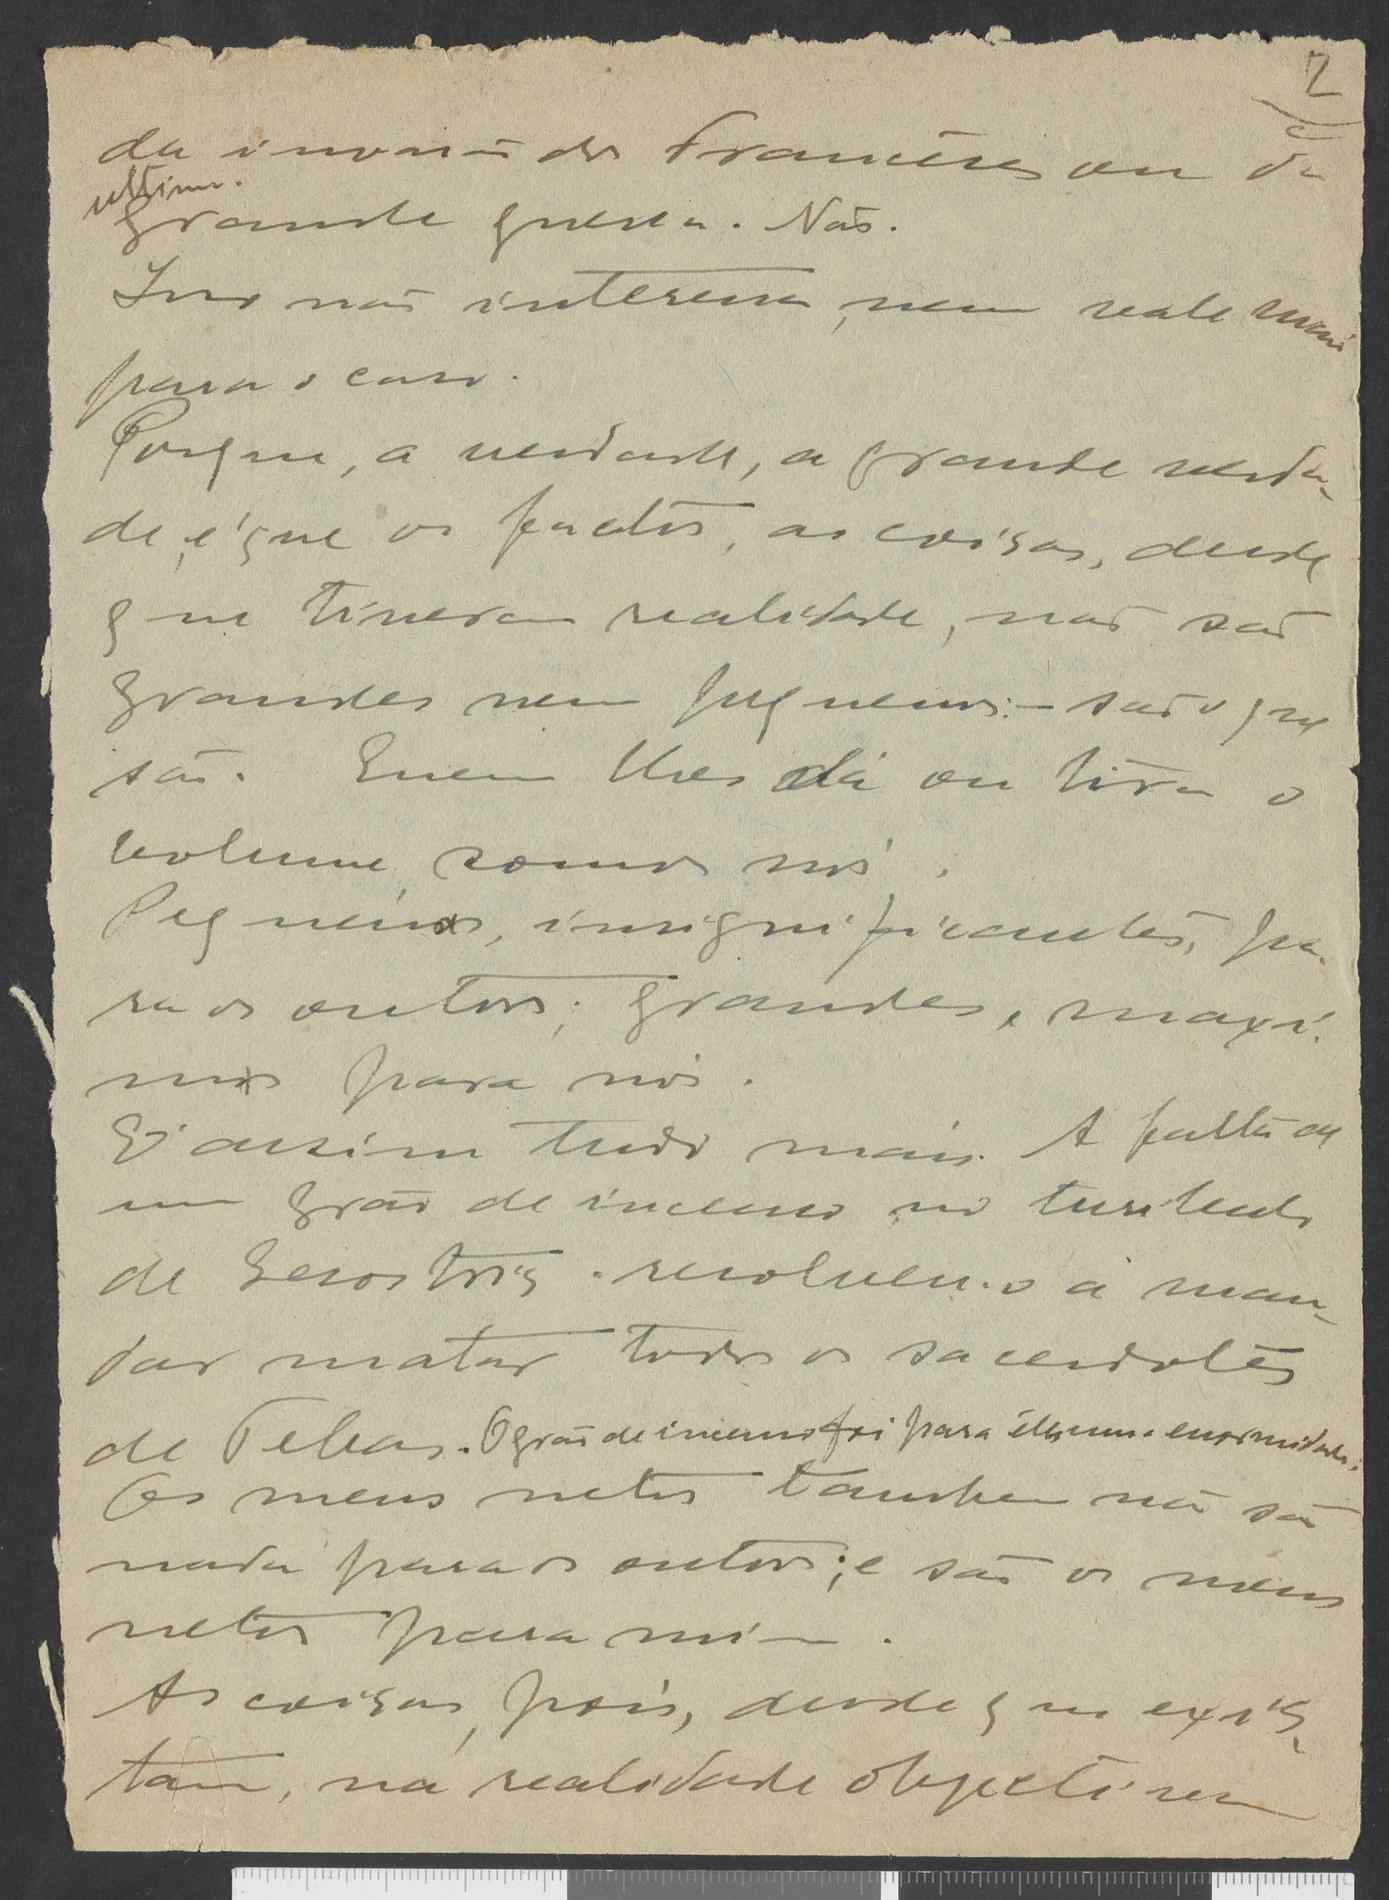 2
da invasão dos Franceses ou da
ultima.
grande guerra. Não.
Isso não interessa, nem vale mais
para o caso.
Porque, a verdade, a grande verda-
de, é que os factos, as coisas, desde
que tiveram realidade, não são
grandes nem pequenos:- são o que
são. Quem lhes dá ou tira o
volume, somos nós.
Pequeninos, insignificantes, pa-
ra os outros; grandes, maxi-
mos para nós.
E' assim tudo mais. A falta de
um grão de incenso no turibulo
de Sesostris resolveu-o a man-
dar matar todos os sacerdotes
de Tebas. O grão de incenso foi para êles uma enormidade.
Os meus netos tambem não são
nada para os outros; e são os meus
netos para mim.
As coisas, pois, desde que exis-
tam, na realidade objectiva